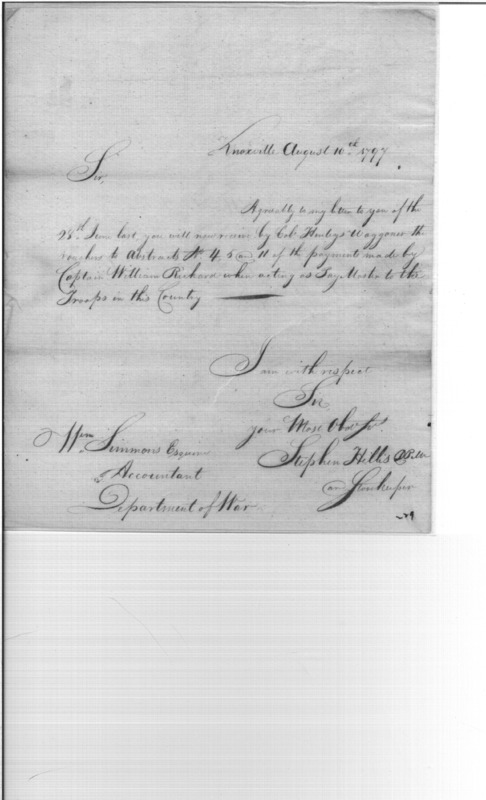 Knoxville August 10th 1797
Sir,
Agreeably to my letter to you of the
28th June last, you will now receive by Colo Henleys Waggoner the
Vouchers to Abstracts No 4. 5 and 11 of the payments made by
Captain William Rickard when acting as Pay Master to the
Troops in this Country
I am with respect
Sir
your Most Obdt St
Stephen Hillis
and Storekeeper
Wm Simmons Esquire
Accountant
Department of War